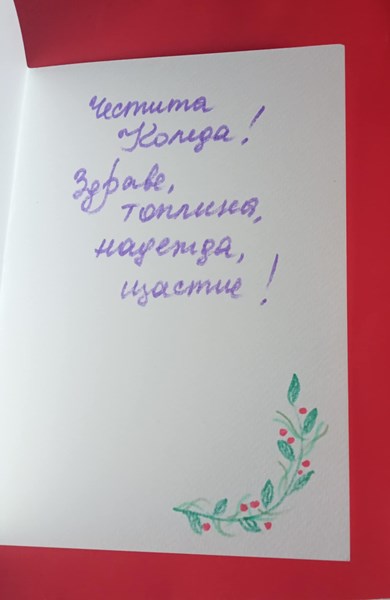 Честита
Коледа!
Здраве,
топлина,
надежда,
щастие!